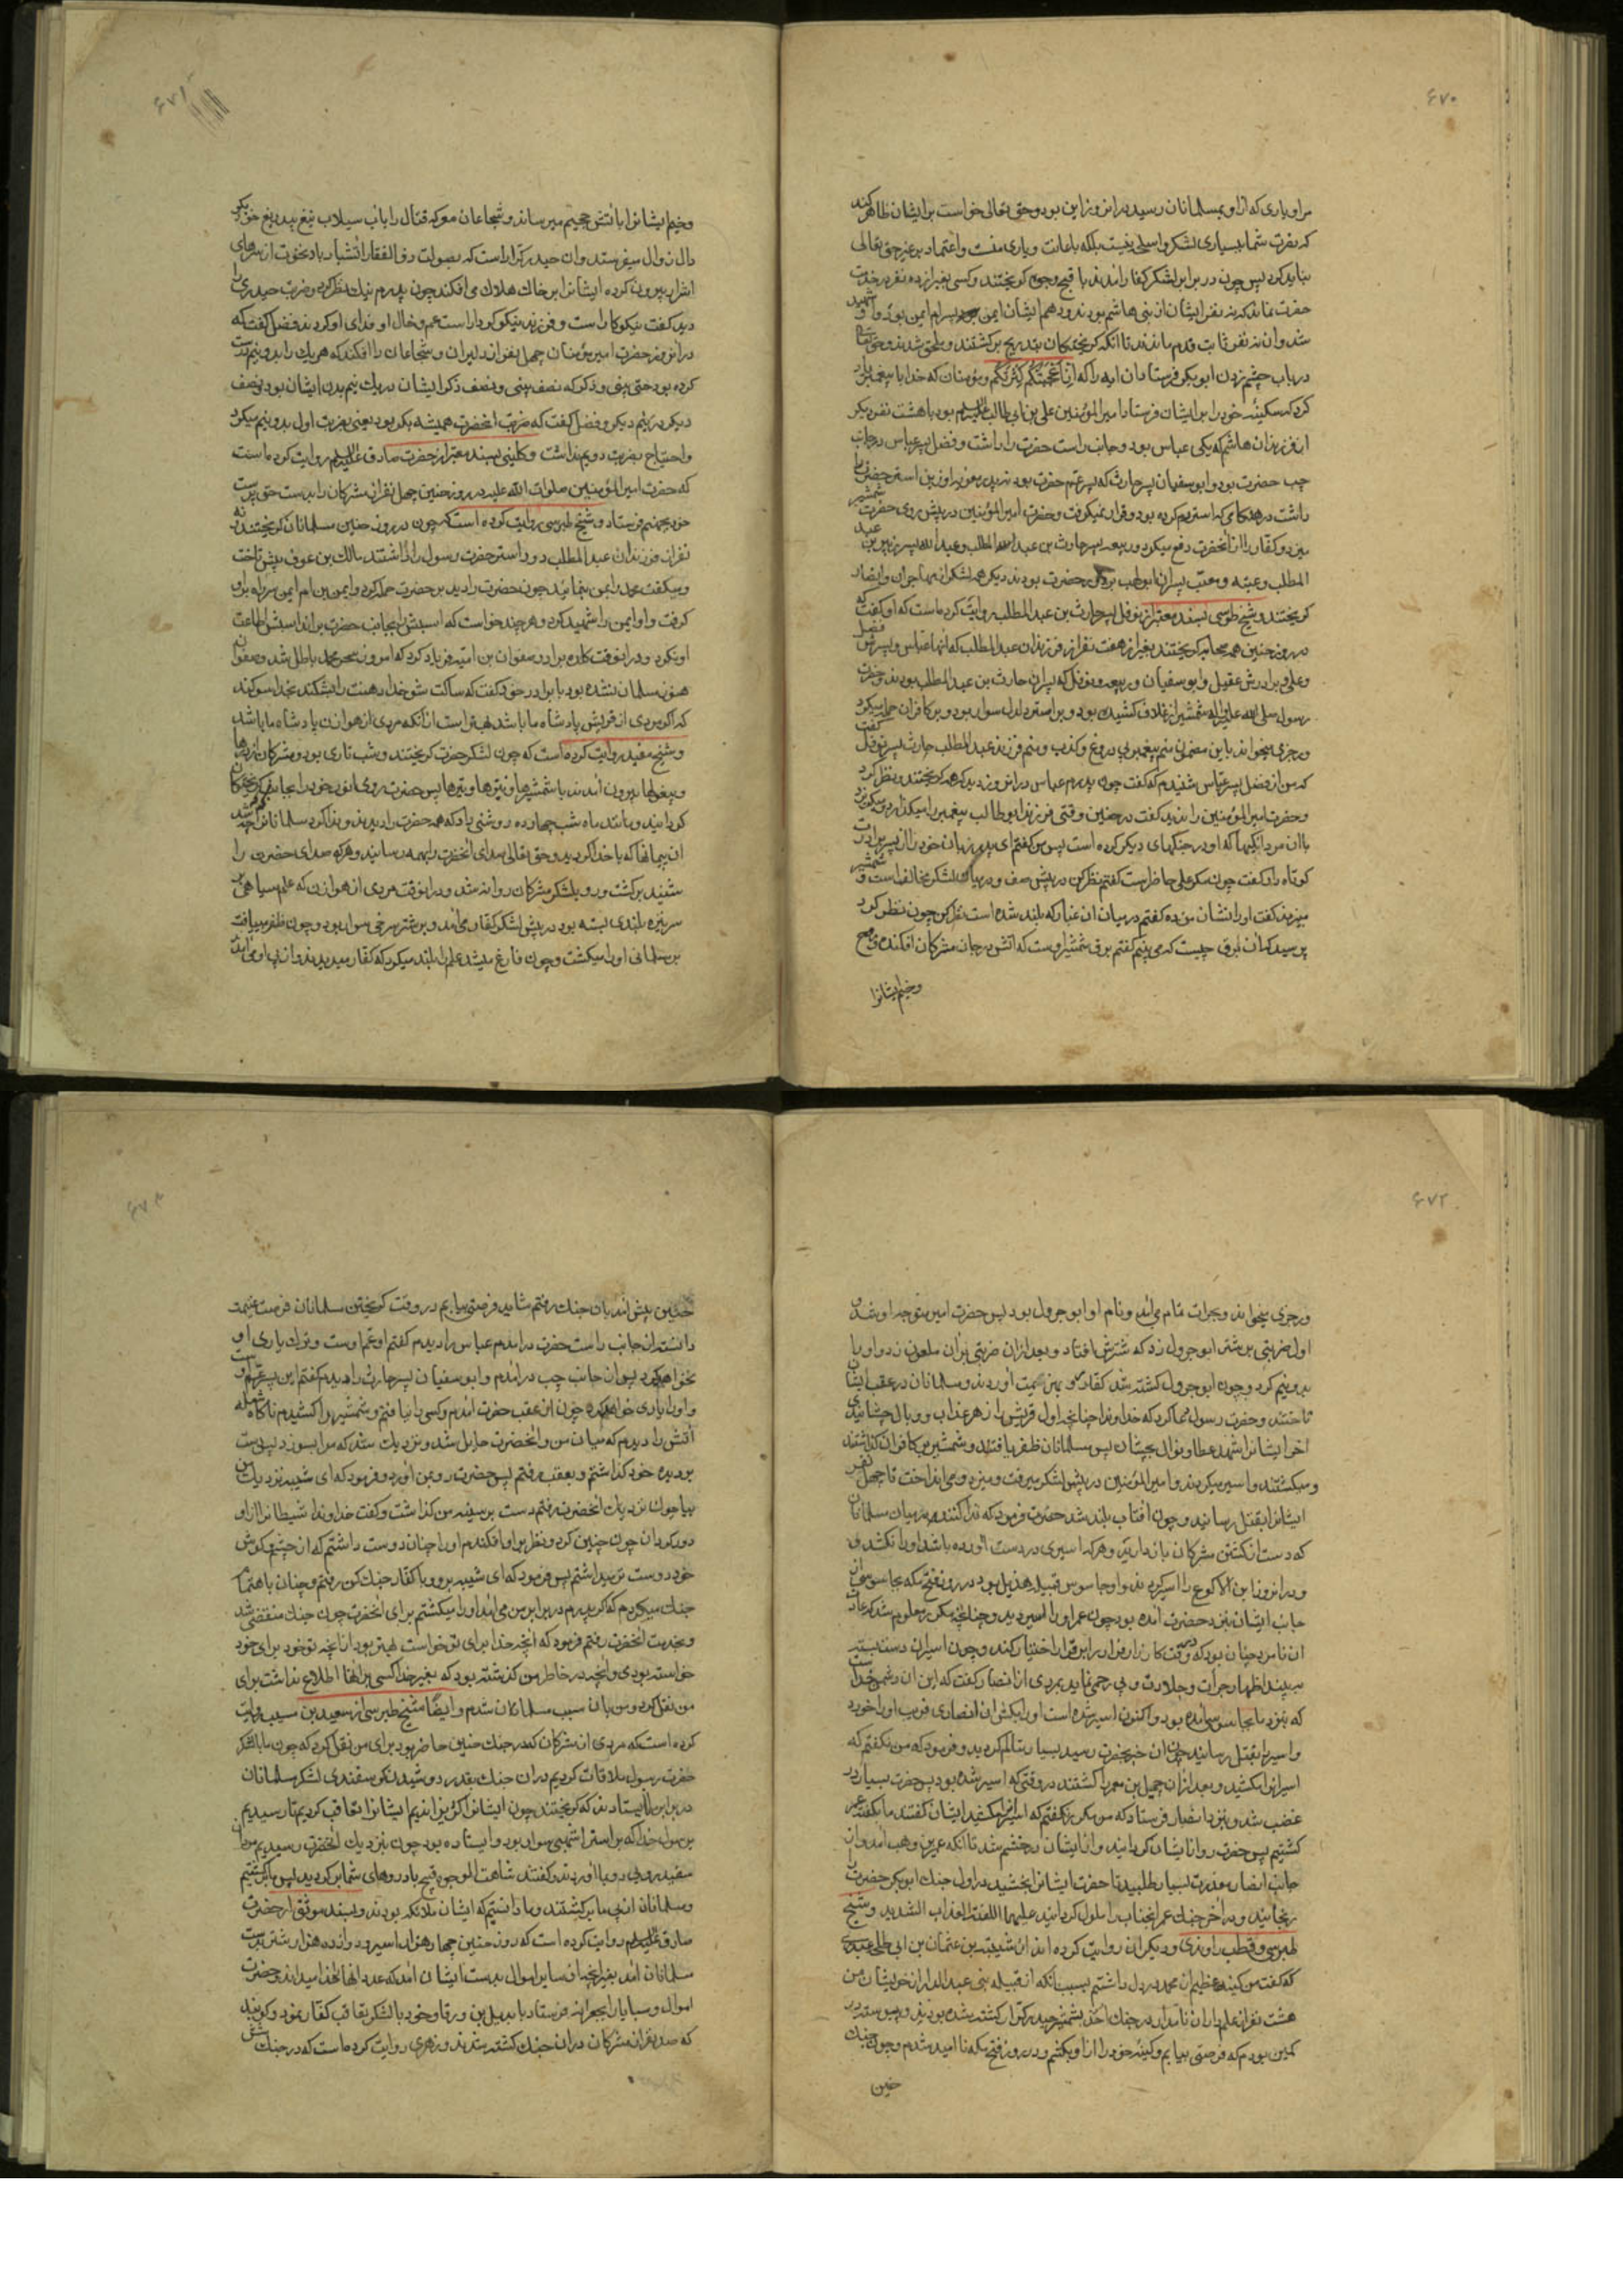 ۶۷۰
مراو یاری که ازاو بمسلمانان رسید در انروز این بود و حق تعالی خواست بر ایشان ظاهر کند
که نصرت شما ببسیاری لشکر و اسلحه نیست بلکه باعانت و یاری منست و اعتماد بر غیر حق تعالی
نباید کرد پس چون در برابر لشکر کفار امدند باقبح وجوه کریختند و کسی بغیر از ده نفر در خدمت
حضرت نماند که نه نفر ایشان از بنی هاشم بودند و دهم ایشان ایمن پسر ام ایمن بود و او شهید
شد و ان نه نفر ثابت قدم ماندند تا انکه کریختکان بتدریج برکشتند و ملحق شدند و حق تعالی
در باب چشم زدن ابوبکر فرستاد ان ایه را که اذ اعجبتکم کثرتکم و مؤمنان که خدا با پیغمبر یاد
کرد که سکینه خود را بر ایشان فرستاد امیر المؤمنین علی بن ابی طالب علیه السلام بود با هشت نفر دیکر
از فرزندان هاشم که یکی عباس بود و جانب راست حضرت را داشت و فضل پسر عباس در جانب
چپ حضرت بود و ابوسفیان پسر حارث که پسر عم حضرت بود
داشت در هنکامی که استر رم کرده بود و قرار نمیکرفت و حضرت امیر المؤمنین در پیش روی حضرت شمشیر
میزد و کفار را از انحضرت دفع میکرد و ربیعه پسر حارث بن عبد المطلب و عبد الله پسر زبیر بن عبد
المطلب و عتبه و معتب پسران ابولهب بر دور حضرت بودند دیکر همه لشکر از مهاجران و انصار
کریختند و شیخ طوسی بسند معتبر از نوفل پسر حارث بن عبد المطلب روایت کرده است که او کفت که
در روز حنین همه صحابه کریختند بغیر از هفت نفر از فرزندان عبد المطلب که انها عباس و پسرش فضل
و علی و برادرش عقیل و ابوسفیان و ربیعه و نوفل که پسران حارث بن عبد المطلب بودند و حضرت
رسول صلی الله علیه و اله شمشیر از غلاف کشیده بود و بر استر دلدل سوار بود و بر کافران حمله میکرد
و رجزی میخواند باین مضمون منم پیغمبر بی دروغ و کذب و منم فرزند عبد المطلب حارث پسر نوفل کفت
که من از فضل پسر عباس شنیدم که کفت چون پدرم عباس در انروز دید که همه کریختند و نظر کرد
و حضرت امیر المؤمنین را ندید کفت در چنین وقتی فرزند ابوطالب پیغمبر را میکذارد و میکریزد
باان مردانکیها که او در جنکهای دیکر کرده است پس من کفتم ای پدر زبان خود را از پسر برادرت
کوتاه دار کفت چون مکر علی حاضر است کفتم نظر کن در پیش صف و در میان لشکر مخالف است و شمشیر
میزند کفت او را نشان من ده کفتم در میان ان غبار که بلند شده است نظر کن چون نظر کرد
پرسید که ان برق چیست که می بینم کفتم برق شمشیر اوست که اتش در جان مشرکان افکنده
و خیم ایشانرا
۶۷۱
و خیم ایشانرا باتش جحیم میرساند و شجاعان معرکه قتال را باب سیلاب تیغ بیدریغ
دال زوال میفرستد و ان حیدر کرار است که بصولت ذوالفقار اتشبار باد نخوت از سرهای
اشرار بیرون کرده ایشانرا بر خاک هلاک می افکند چون پدرم نیک نظر کرد و ضربت حیدری را
دید کفت نیکو کار است و فرزند نیکو کردار است عم و خال او فدای او کردند فضل کفت که
در انروز حضرت امیر مؤمنان چهل نفر از دلیران و شجاعان را افکند که هر یک را بدو نیم درست
کرده بود حتی بینی و ذکر که نصف بینی و نصف ذکر ایشان در یک نیم بدن ایشان بود و نصف
دیکر در نیم دیکر و فضل کفت که ضربت انحضرت همیشه بکر بود یعنی بضربت اول بدو نیم میکرد
و احتیاج بضربت دویم نداشت و کلینی بسند معتبر از حضرت صادق علیه السلم روایت کرده است
که حضرت امیر المؤمنین صلوات الله علیه در روز حنین چهل نفر از مشرکان را بدست حق پرست
خود بجهنم فرستاد و شیخ طبرسی روایت کرده است که چون در روز حنین مسلمانان کریختند نه
نفر از فرزندان عبد المطلب دور استر حضرت رسول را داشتند مالک بن عوف پیش تاخت
و میکفت محمد را بمن بنمائید چون حضرت را دید بر حضرت حمله کرد و ایمن بن ام ایمن سر راه بر او
کرفت و او ایمن را شهید کرد و هر چند خواست که اسبش را بجانب حضرت براند اسبش اطاعت
او نکرد و در انوقت کلده برادر صفوان بن امیه فریاد کرد که امروز سحر محمد باطل شد و صفوان
هنوز مسلمان نشده بود با برادر خود کفت که ساکت شو خدا دهنت را بشکند بخدا سوکند
که اکر مردی از قریش پادشاه ما باشد بهتر است از انکه مردی از هوازن پادشاه ما باشد
و شیخ مفید روایت کرده است که چون لشکر حضرت کریختند و شب تاری بود و مشرکان از درها
و پیغولها بیرون امدند با شمشیرها و نیزها و تیرها پس حضرت روی انور خود را بجانب کریختکان
کردانید و مانند ماه شب چهارده روشنی داد که همه حضرت را دیدند و ندا کرد مسلمانانرا که چه شد
ان پیمانها که با خدا کردید و حق تعالی صدای انحضرت را بهمه رسانید و هر که صدای حضرت را
شنید برکشت و رو بلشکر مشرکان روانه شد و در انوقت مردی از هوازن که علم سیاهی بر
سر نیزه بلندی بسته بود در پیش لشکر کفار می امد و بر شتر سرخی سوار بود و چون ظفر مییافت
بر مسلمانی او را میکشت و چون فارغ میشد علم را بلند میکرد که کفار میدیدند و از پی او می امدند
۶۷۲
و رجزی میخواند و بجرات تمام می امد و نام او ابو جرول بود پس حضرت امیر متوجه او شد و
اول ضربتی بر شتر ابو جرول زد که شترش افتاد و بعد ازان ضربتی بران ملعون زد و او را
بدو نیم کرد و چون ابو جرول کشته شد کفار رو بهزیمت اوردند و مسلمانان در عقب ایشان
تاختند و حضرت رسول دعا کرد که خداوندا چنانچه اول قریش را زهر عذاب و وبال چشانیدی
اخر ایشانرا شهد عطا و نوال بچشان پس مسلمانان ظفر یافتند و شمشیر بر کافران کذاشتند
و میکشتند و اسیر میکردند و امیر المؤمنین در پیش لشکر میرفت و میزد و می انداخت تا چهل نفر
ایشانرا بقتل رسانید و چون افتاب بلند شد حضرت فرمود که ندا کنند در میان مسلمانان
که دست از کشتن مشرکان باز دارند و هر که اسیری در دست اورده باشد او را نکشد و
در انروز ابن الاکوع را اسیر کردند و او جاسوس قبیله هذیل بود در روز فتح مکه بجاسوسی از
جانب ایشان بنزد حضرت امده بود چون عمر او را اسیر دید و چنانچه مکرر معلوم شد که عادت
ان نامرد چنان بود که در وقت کارزار فرار را بر قرار اختیار کند و چون اسیران دست بسته
ببیند اظهار جرات و جلادت و بی رحمی نماید بمردی از انصار کفت که این ان دشمن خداست
که بنزد ما بجاسوسی امده بود و اکنون اسیر شده است او را بکش ان انصاری فریب او را خورد
و اسیر را بقتل رسانید چون ان خبر بحضرت رسید بسیار متالم کردید و فرمود که من نکفتم که
اسیرانرا مکشید و بعد ازان جمیل بن معمر را کشتند در وقتی که اسیر شده بود پس حضرت بسیار در
غضب شد و بنزد انصار فرستاد که من مکرر نکفتم که اسیرانرا مکشید ایشان کفتند ما بکفته عمر
کشتیم پس حضرت رو از ایشان کردانید و از ایشان در خشم شد تا انکه عمیر بن وهب امد و از
جانب انصار معذرت بسیار طلبید تا حضرت ایشانرا بخشید در اول جنک ابوبکر حضرت را
رنجانید و در اخر جنک عمر انجناب را ملول کردانید علیهما اللعنة و العذاب الشدید و شیخ
طبرسی و قطب راوندی و دیکران روایت کرده اند از شیبة بن عثمان بن ابی طلحه عبدری
که کفت من کینه عظیم از محمد در دل داشتم بسبب انکه از قبیله بنی عبد الدار از خویشان من
هشت نفر از علمداران نامدار در جنک احد بشمشیر حیدر کرار کشته شده بودند و پیوسته در
کمین بودم که فرصتی بیابم و کینه خود را از او بکشم و در روز فتح مکه نا امید شدم و چون جنک
حنین
۶۷۳
حنین پیش امد بان جنک رفتم شاید فرصتی بیابم در وقت کریختن مسلمانان فرصت غنیمت
دانسته از جانب راست حضرت در امدم عباس را دیدم کفتم او عم اوست و ترک یاری او
نخواهد کرد پس از جانب چپ در امدم و ابوسفیان پسر حارث را دیدم کفتم این پسر عم اوست
و او را یاری خواهد کرد چون از عقب حضرت امدم و کسی را نیافتم و شمشیر را کشیدم ناکاه شعله
اتش را دیدم که میان من و انحضرت حایل شد و نزدیک شد که مرا بسوزد پس دست
بر دیده خود کذاشتم و بعقب رفتم پس حضرت رو بمن اورد و فرمود که ای شیبه نزدیک من
بیا چون نزدیک انحضرت رفتم دست بر سینه من کذاشت و کفت خداوندا شیطانرا از او
دور کردان چون چنین کرد و نظر بر او افکندم او را چنان دوست داشتم که از چشم و کوش
خود دوست تر میداشتم پس فرمود که ای شیبه برو و با کفار جنک کن رفتم و چنان باهتمام
جنک میکردم که اکر پدرم در برابر من می امد او را میکشتم برای انحضرت چون جنک منقضی شد
و بخدمت انحضرت رفتم فرمود که انچه خدا برای تو خواست بهتر بود از انچه تو خود برای خود
خواسته بودی و انچه در خاطر من کذشته بود که بغیر خدا کسی بر انها اطلاع نداشت برای
من نقل کرد و من بان سبب مسلمان شدم و ایضا شیخ طبرسی از سعید بن مسیب روایت
کرده است که مردی از مشرکان که در جنک حنین حاضر بود برای من نقل کرد که چون ما با لشکر
حضرت رسول ملاقات کردیم در ان جنک بقدر دوشیدن کوسفندی لشکر مسلمانان
در برابر ما نایستادند که کریختند چون ایشانرا کریزاندیم ایشانرا تعاقب کردیم تا رسیدیم
برسول خدا که بر استر اشهبی سوار بود و ایستاده بود چون بنزدیک انحضرت رسیدیم مردان
سفید روئی رو بما اوردند و کفتند شاهت الوجوه قبیح باد روهای شما برکردید پس ما برکشتیم
و مسلمانان از پی ما برکشتند و ما دانستیم که ایشان ملائکه بودند و بسند موثق از حضرت
صادق علیه السلم روایت کرده است که روز حنین چهار هزار اسیر و دوازده هزار شتر بدست
مسلمانان امد بغیر انچه از سایر اموال بدست ایشان امد که عدد انها را خدا میداند و حضرت
اموال و سبایا را بجعرانه فرستاد با بدیل بن ورقا و خود با لشکر تعاقب کفار نمود و کویند
که صد نفر از مشرکان در ان جنک کشته شدند و زهری روایت کرده است که در جنک شش